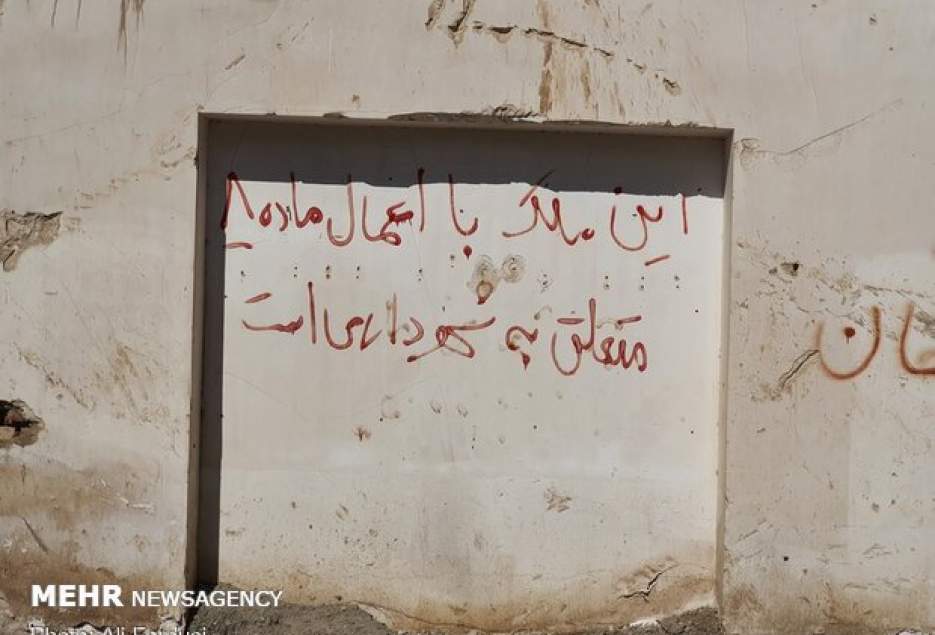 این ملک با اعمال ماده ۸
متعلق به شهرداری است
MEHR NEWSAGENCY